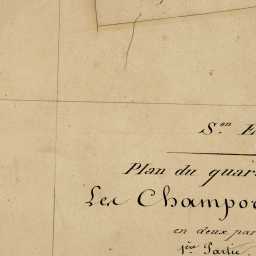 S.on E
Plan du quar
Les Champo
en deux par
1ère Partie.